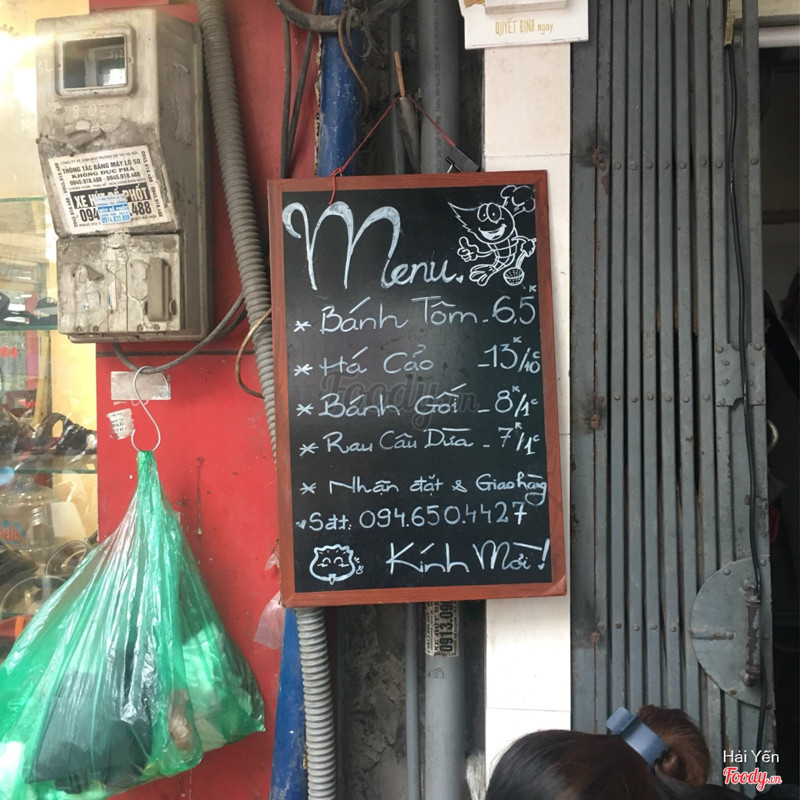 QUYẾT ĐỊNH ngay
THÔNG TẮC BẰNG MÁY LÒ SO
KHÔNG ĐỤC PHÁ
0945.919.488 - 0945.919.488
XE HÚT BỂ PHỐT
Menu.
* Bánh Tôm - 6,5k
* Há Cảo - 13k/10c
* Bánh Gối - 8k/1c
* Rau Câu Dừa - 7k/1c
* Nhận đặt & Giao hàng
Sđt. 094.650.4427
Kính Mời!
Foody.vn
Hải Yến
Foody.vn